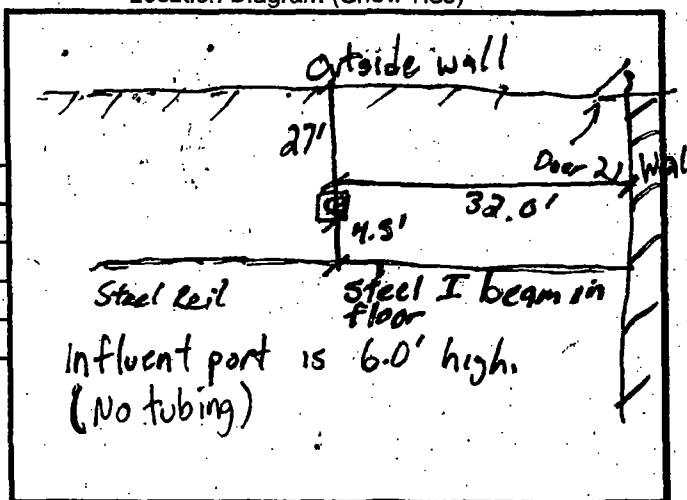 Location Diagram (Show Ties)
Outside wall
27'
Door 21
Wall
32.0'
4.5'
Steel Rail
steel I beam in
floor
Influent port is 6.0' high.
(No tubing)